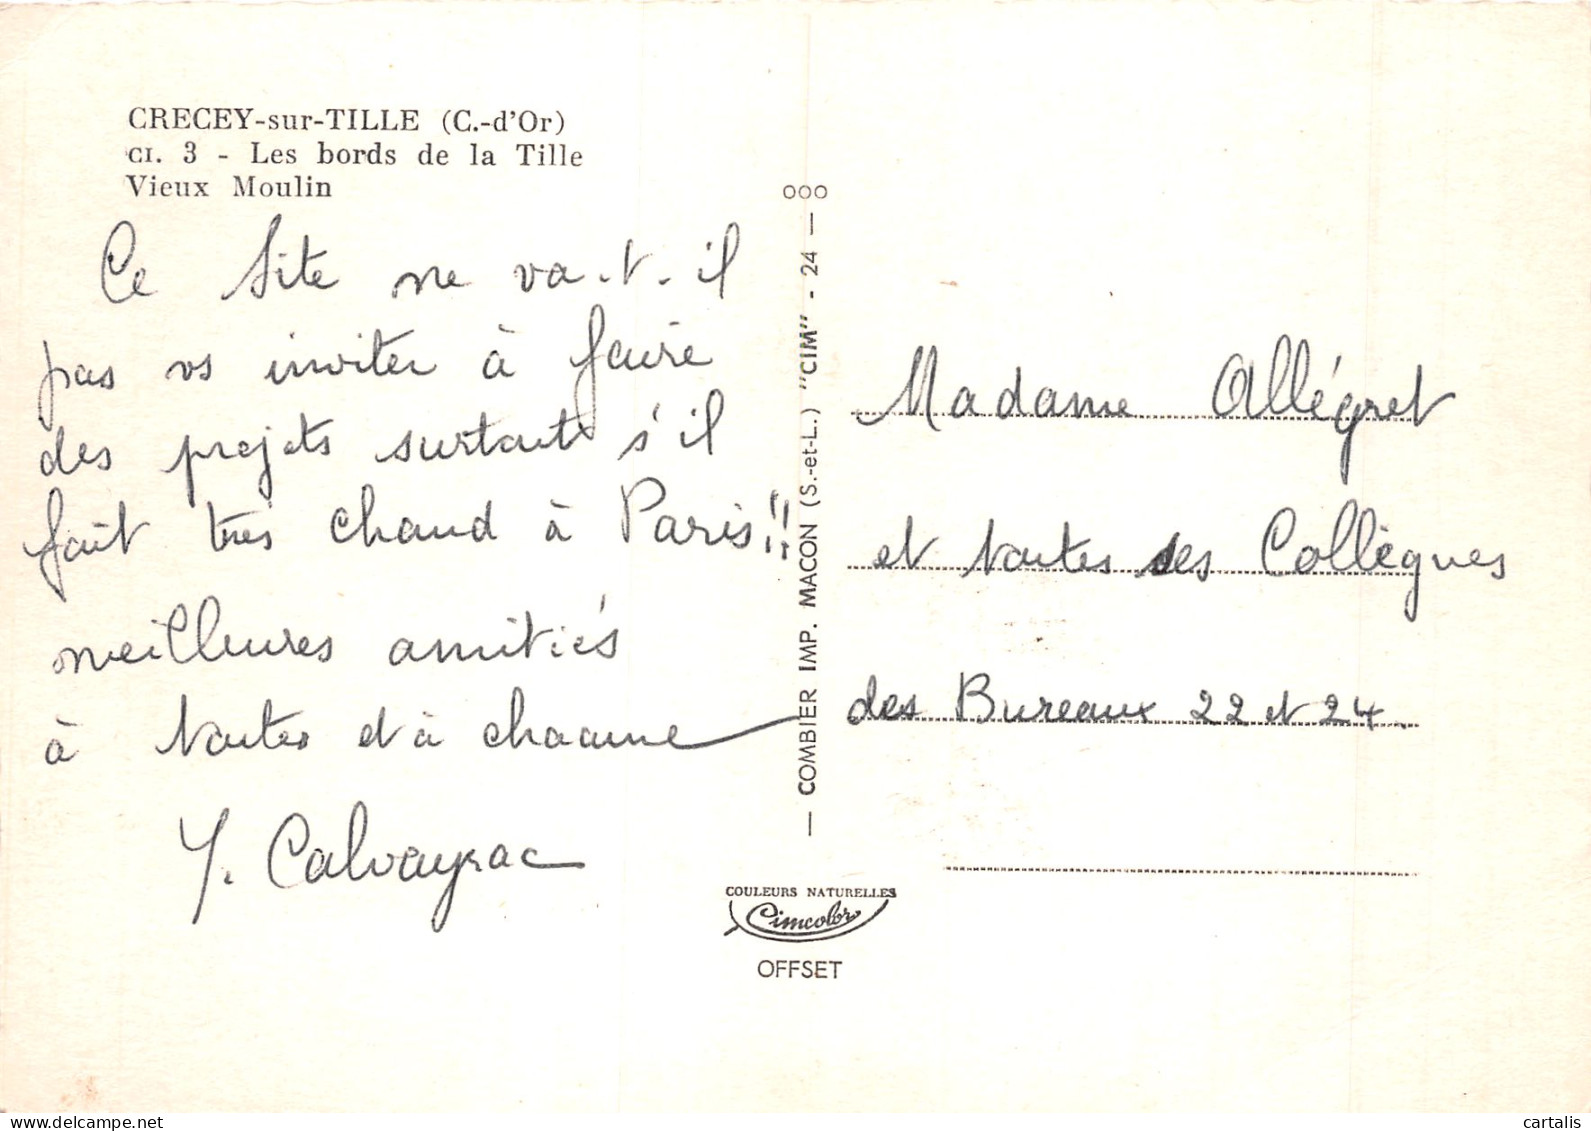 CRECEY-sur-TILLE (C.-d'Or)
CI. 3 - Les bords de la Tille
Vieux Moulin
Ce Site ne va-t-il
pas vs inviter à faire
des projets surtout s'il
fait très chaud à Paris!!
meilleures amitiés
à toutes et à chacune
Y. Calvayrac
000
— COMBIER IMP. MACON (S.-et-L.) "CIM" - 24 —
COULEURS NATURELLES
Cimcolor
OFFSET
Madame Allégret
et toutes ses Collègues
des Bureaux 22 et 24
Delcampe.net
cartalis